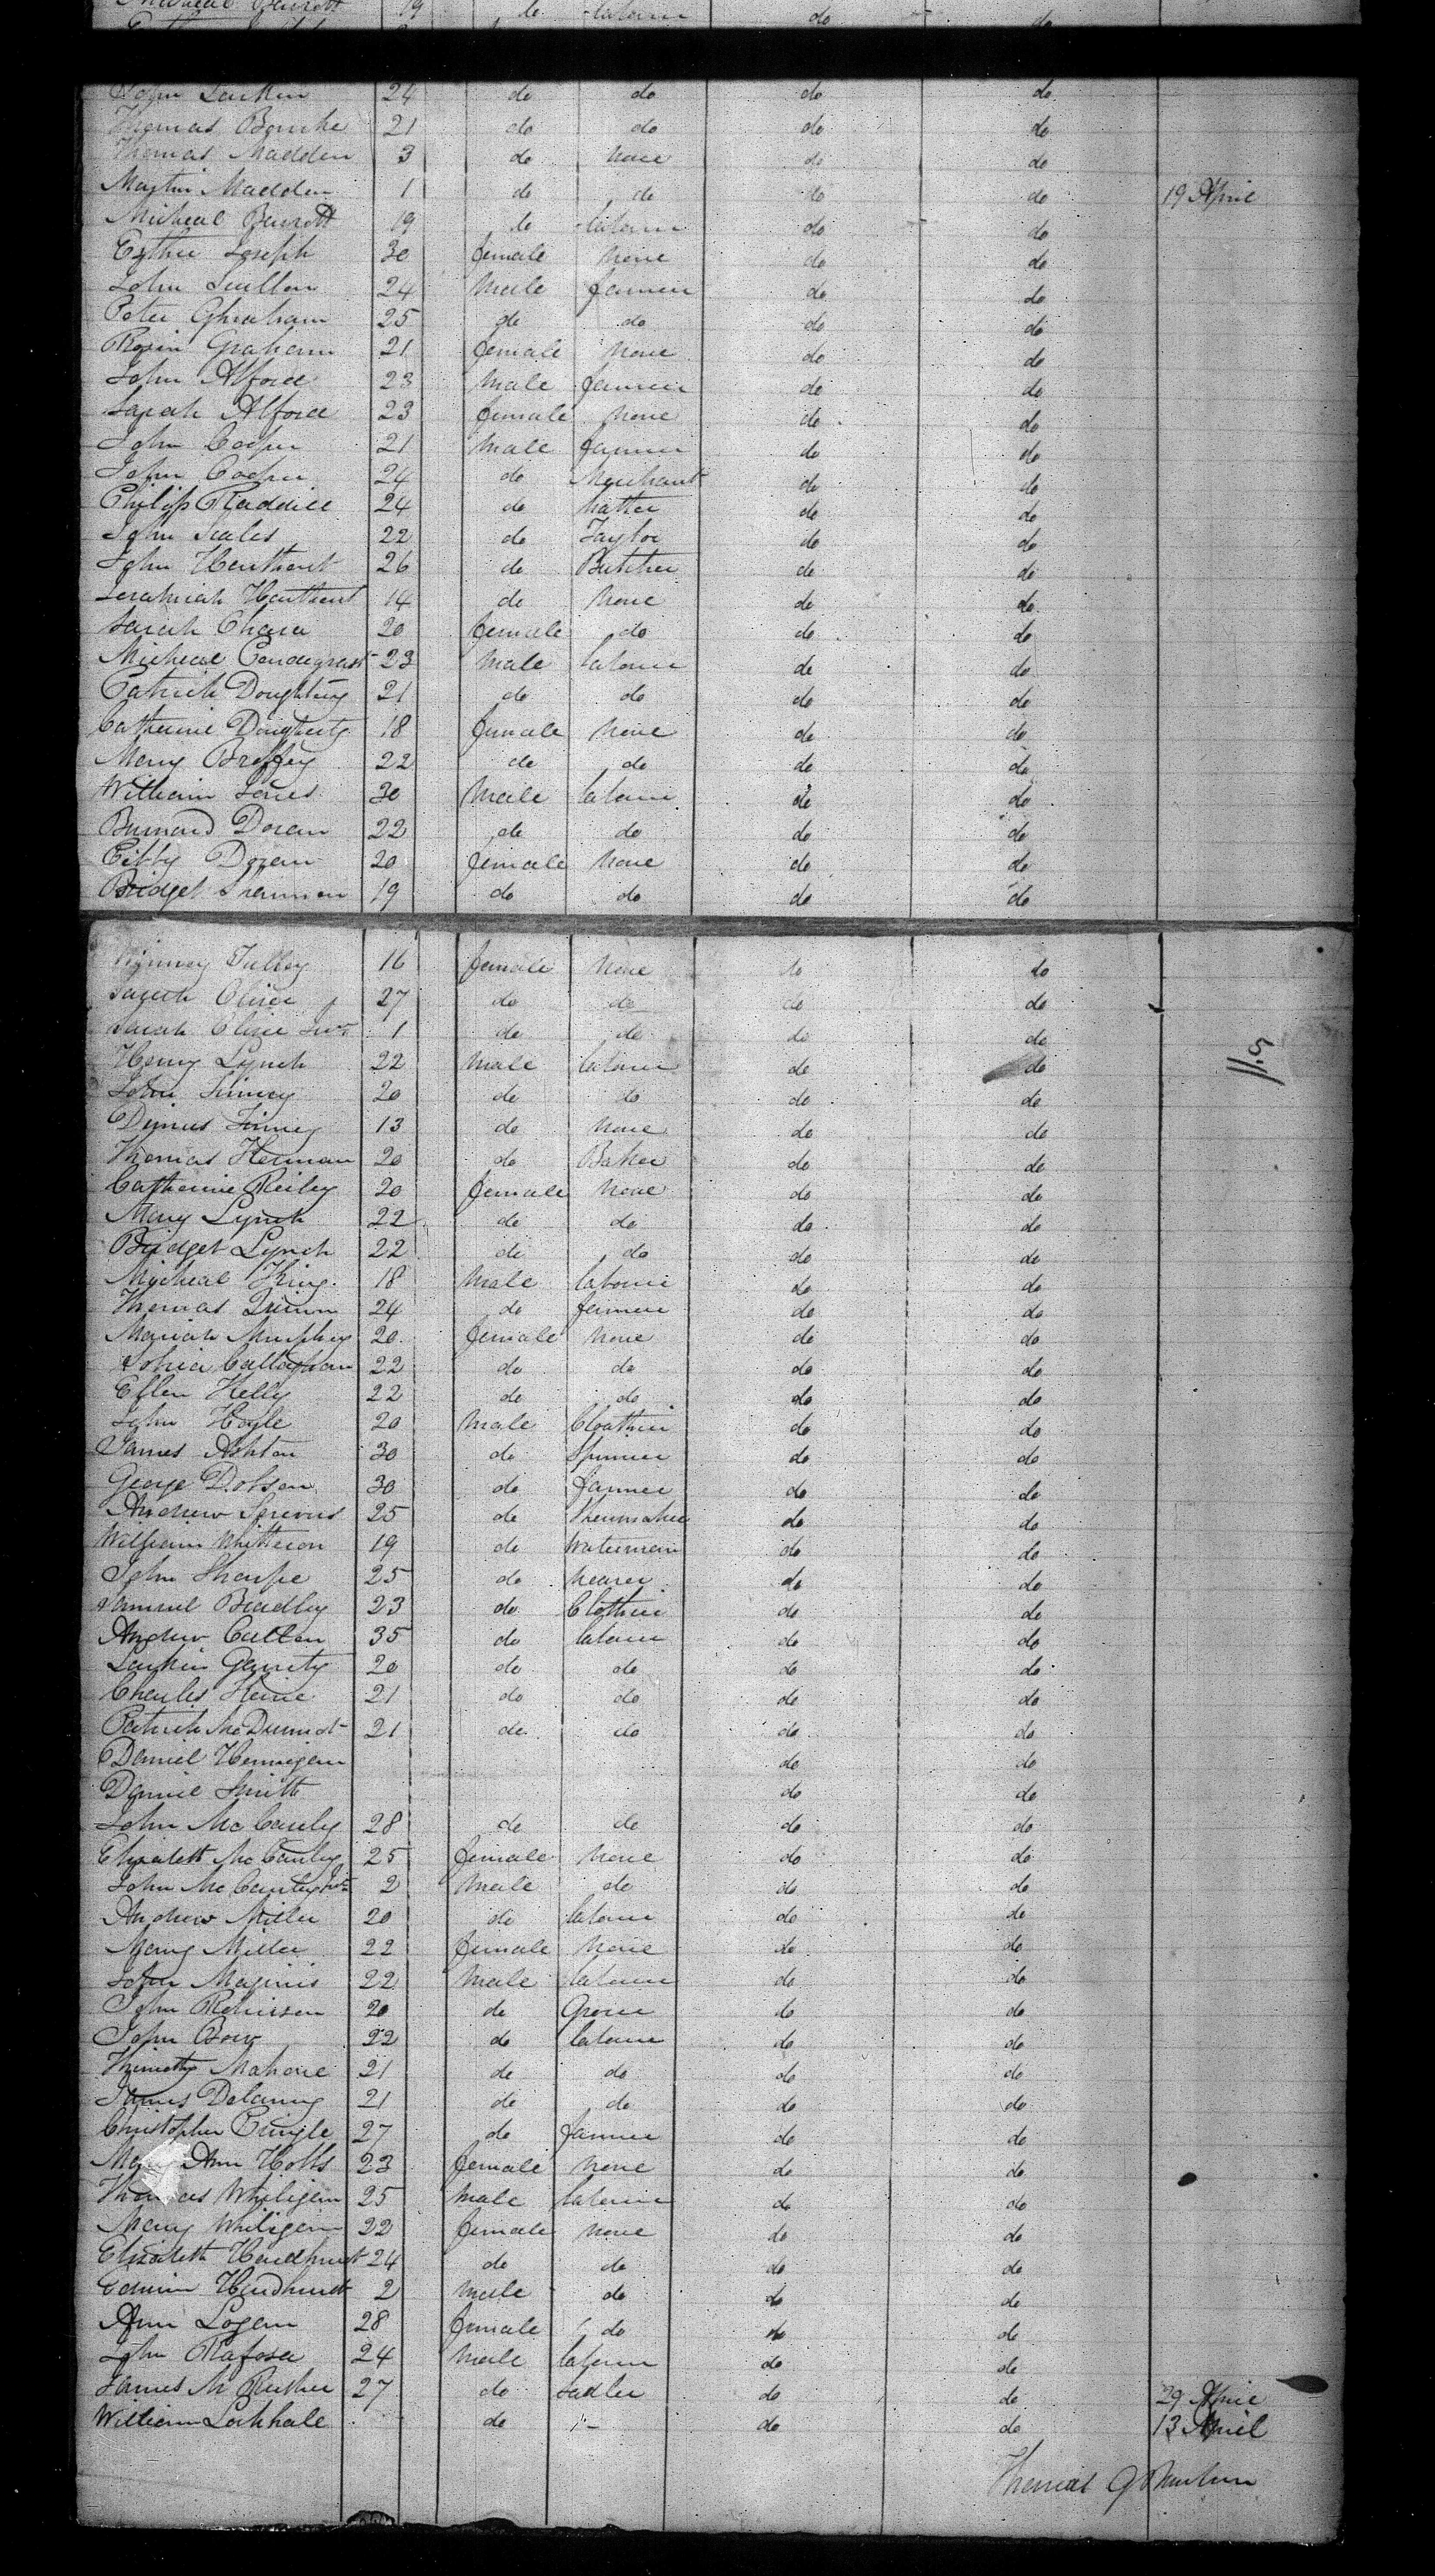 Micheal Barrott 19 do labourer do do
John Larkin 24 do do do do
Thomas Bourke 21 do do do do
Thomas Madden 3 do None do do
Martin Madden 1 do do do do 19 April
Micheal Barrott 19 do labourer do do
Esther Joseph 30 female None do do
John Scullen 24 Male farmer do do
Peter Ghraham 25 do do do do
Rosin Graham 21 female None do do
John Alford 23 Male farmer do do
Sarah Alford 23 female None do do
John Cooper 21 Male farmer do do
John Cooper 24 do Merchant do do
Philip Raddice 24 do hatter do do
John Scales 22 do Taylor do do
John Hawthorst 26 do Butcher do do
Jerahmiah 14 do None do do
Sarah Ohara 20 female do do do
Micheal Pendegrast 23 Male labourer do do
Patrick Doughtery 21 do do do do
Catherine Dougherty 18 female None do do
Mary Breffey 22 do do do do
William Jones 30 Male labourer do do
Burnard Doran 22 do do do do
Bitty Doran 20 female None do do
Bridget Shannon 19 do do do do
Tulley 16 female None do do
Sarah Cline 27 do do do do
Sarah Cline Junr 1 do do do do
Henry Lynch 22 Male labourer do do
115
John Finney 20 do do do do
Dinnis Finney 13 do None do do
Thomas Hernan 20 do Baker do do
Catherine Reiley 20 female None do do
Mary Lynch 22 do do do do
Bridget Lynch 22 do do do do
Micheal King 18 Male labourer do do
Thomas Quinn 24 do farmer do do
Mariah Murphey 20 female None do do
Callaghan 22 do do do do
Ellen Kelly 22 do do do do
John Hoyle 20 Male Cloathier do do
James Ashton 30 do Spinner do do
George Dobson 30 do farmer do do
Andrew 25 do Shoemaker do do
William Whitteron 19 do Waterman do do
John Sharpe 25 do do do
Samuel Bradley 23 do Clothier do do
Andrew Cullen 35 do labourer do do
Larkin Garrity 20 do do do do
Charles 21 do do do do
Patrick McDurmot 21 do do do do
Daniel Hennigan do do
Daniel Smith do do
John McCauley 28 do do do do
Elizabeth McCauley 25 female None do do
John McCauley Junr 2 Male do do do
Andrew Miller 20 do labourer do do
Mary Miller 22 female None do do
John Maginis 22 Male labourer do do
John Robinson 20 do Grocer do do
John 22 do labourer do do
Thimothy Mahone 21 do do do do
James Delaney 21 do do do do
Christopher Pringle 27 do farmer do do
Mary Ann Hobbs 23 female None do do
Thomas Whiligan 25 Male labourer do do
Mary Whiligan 22 female None do do
Elizabeth Hendhurst 24 do do do do
Edwin Hendhurst 2 Male do do do
Ann Logan 28 female do do do
John 24 Male labourer do do
James M 27 do Sadler do do 29 April
William Lockhale do do do 13 April
Thomas G